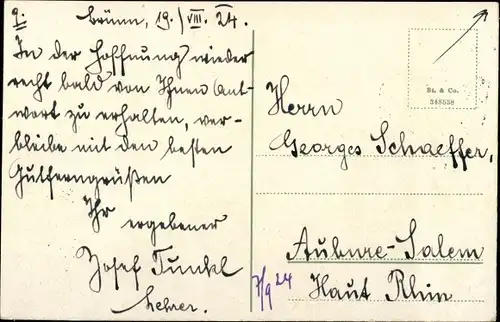 9. Brünn, 19./VIII. 24.
In der Hoffnung, wieder
recht bald von Ihnen Ant-
wort zu erhalten, ver-
bleibe mit den besten
Gutferngrüßen
Ihr ergebener
Josef Tunkl
Lehrer.
St. & Co.
348538
Herrn
Georges Schaeffer,
Aubure-Salem
Haut Rhin
7/9 24